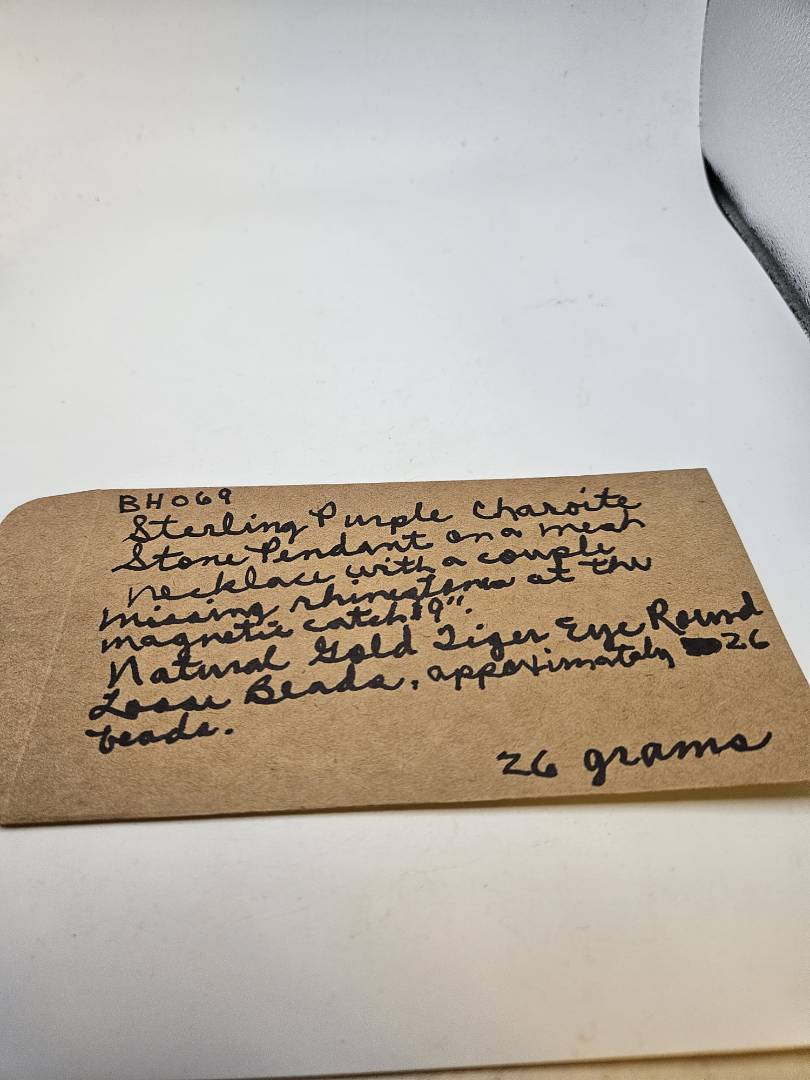 BH069
Sterling Purple Charoite
Stone Pendant on a mesh
necklace with a couple
missing rhinestones at the
magnetic catch 19".
Natural Gold Tiger Eye Round
Loose Beads, approximately 26
beads.
26 grams